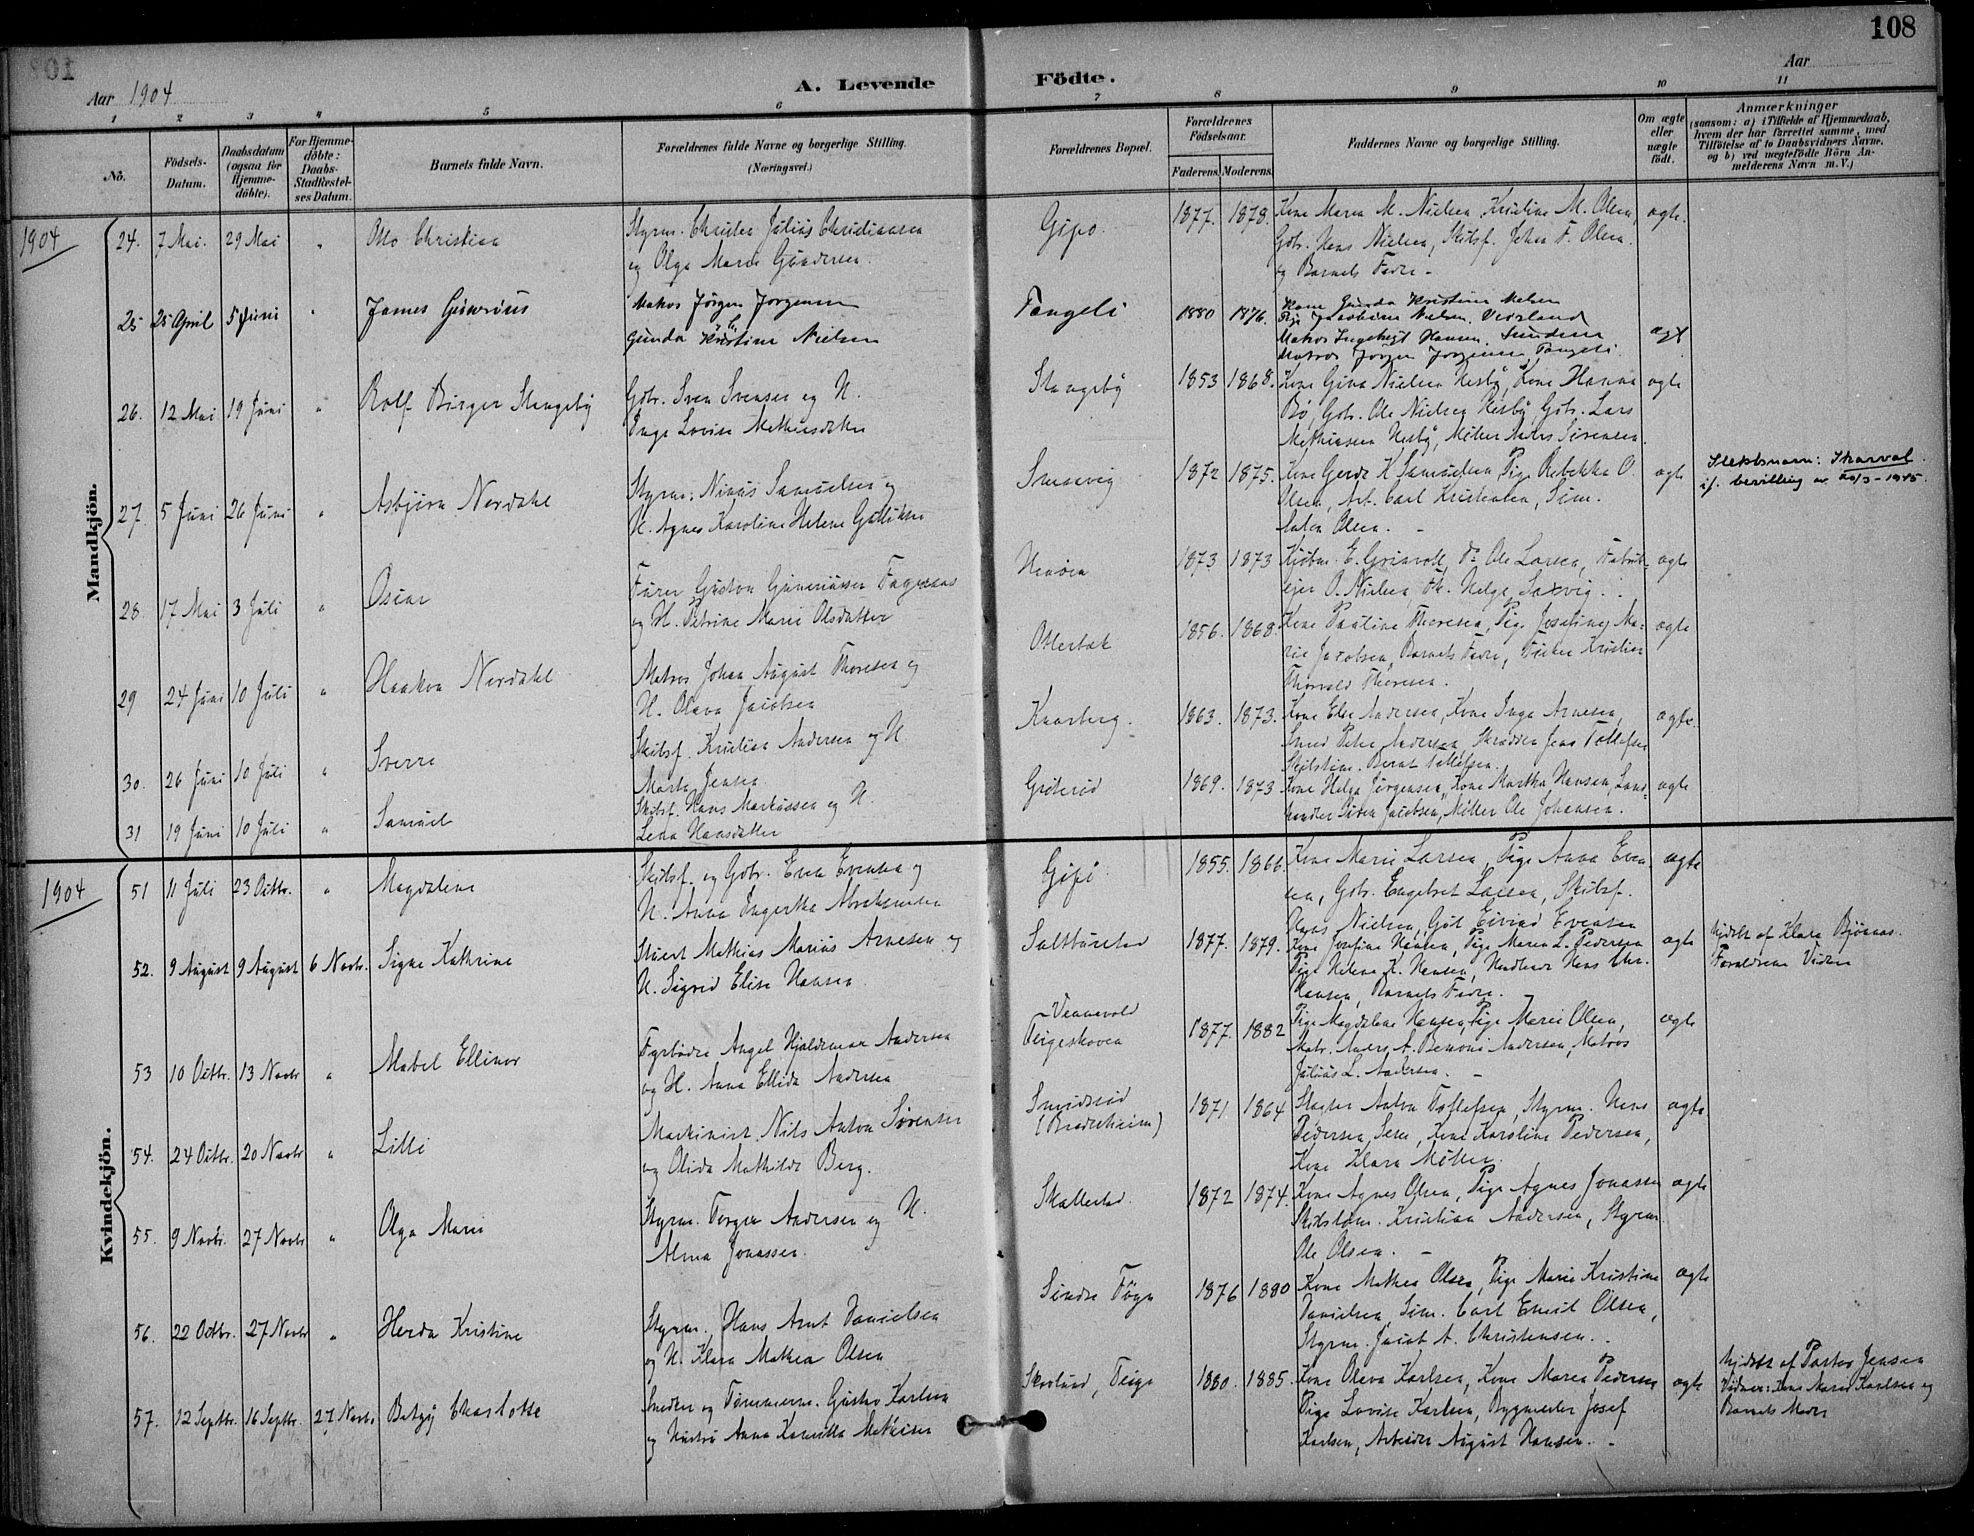 108
Aar 1904
A. Levende
Födte.
Aar
1 2 3 4 5 6 7 8 9 10 11
No.
Födsels-Datum.
Daabsdatum (ogsaa for Hjemmedöbte).
For Hjemmedöbte: Daabs-Stadfæstelses Datum.
Barnets fulde Navn.
Forældrenes fulde Navne og borgerlige Stilling.
(Næringsvei.)
Forældrenes Bopæl.
Forældrenes Födselsaar.
Faderens. Moderens.
Faddernes Navne og borgerlige Stilling.
Om ægte eller uægte födt.
Anmærkninger
(saasom: a) i Tilfælde af Hjemmedaab,
hvem der har forrettet samme, med
Tilföielse af to Daabsvidners Navne,
og b) ved uægtefödte Börn Anmelderens Navn m. V.)
Mandkjön.
1904
24. 7 Mai. 29 Mai " Otto Christian
Styrm. Julius Christiansen
og Olga Marie Gundersen.
Gipø 1877. 1878.
Kone Maren M. Nielsen, Kristine M. Olsen,
Gbr. Hans Nielsen, Skibsf. Johan F. Olsen
og Barnets Fader - ægte.
25 25 April 5 Juni " James Gunerius
Matros Jørgen Jørgensen
Gunda Kristine Nielsen
Tangeli 1880 1876.
Kone Gunda Kristine Nielsen
Pige Jacobine Nielsen.
Matros Ingebrigt Hansen, Sundene
Matros Jørgen Jørgensen, Tangeli. ægt
26. 12 Mai 19 Juni " Rolf Birger Stangeby
Gbr. Sven Svensen og H.
Inga Lovise Mathiesdatter
Stangeby 1853 1868.
Kone Gina Nielsen Nesbø, Kone Hanna
Bø, Gbr. Ole Nielsen Nesbø, Gbr. Lars
Mathiasen Nesbø, Møller Anders Sørensen. ægte
27 5 Juni 26 Juni " Asbjørn Nordahl
Styrm. Samuelsen og
H. Agnes Karoline Helene Gulliksen
Smsevig 1872 1875.
Kone Gerda K. Samuelsen, Pige Rebekka O.
Olsen, Arb. Carl Kristensen, Tim.
Anton Olsen. - ægte
Slektsnavn: Skarval
if. bevilling av 20/3-1945.
28. 17 Mai 3 Juli " Oscar
Gustav Fageraas
og H. Petrine Marie Olsdatter
1873 1873
Kjøbm. E. Grinvoll, do Ole Larsen,
O. Nielsen, Fr. Helga Saxvig. ægte
29 24 Juni 10 Juli " Haakon Nordahl
Matros Johan August Thoresen og
H. Olava Jacobsen
Otterbæk 1856. 1868.
Kone Pauline Thoresen, Pige Josefine Marie
Jacobsen, Barnets Fader, Kristian
Thorvald Thoresen. ægte
30. 26 Juni 10 Juli " Sverre
Skibsf. Kristian Andersen og H.
Marta Jensen
Kaarberg. 1863. 1873.
Kone Else Andersen, Kone Inga Arnesen,
Smed Peter Andersen, Skrædder Jens Tollefsen
Skibstim. Bernt Tollefsen. ægte
31 19 Juni 10 Juli " Samuel
Skibsf. Hans Markussen og H.
Lena Hansdatter
1869. 1873
Kone Helga Jørgensen, Kone Martha Hansen, Landhandler
Jacobsen, Møller Ole Johansen. ægte
Kvindekjön.
1904
51 11 Juli 23 Octbr. " Magdalene
Skibsf. og Gbr. Even Evensen og
H. Anna Abrahamsen
Gipø 1855. 1866.
Kone Marie Larsen, Pige Anna Evensen,
Gbr. Engebret Larsen, Skibsf.
Hans Nielsen, Eivind Evensen ægte
52. 9 August 9 August 6 Novbr. Signe Kathrine
Stuert Mathias Marius Arnesen og
H. Sigrid Elise Hansen
Saltbustad 1877. 1879.
Kone Josefine Hansen, Pige Maren L. Pedersen
Pige Helene K. Hansen, Hans Chr.
Hansen, Barnets Fader. ægte
hjdøbt af Klara Bjønnes.
Forældrene Vidner
53 10 Octbr. 13 Novbr " Mabel Ellinor
Fyrbøder Angel Hjaldemar Andersen
og H. Anna Ellida Andersen
Vennevold
Teigeskoven 1877. 1882
Pige Magdalene Hansen, Pige Marie Olsen,
Matr. A. Benoni Andersen, Matros
Julius L. Andersen. - ægte
54. 24 Octbr. 20 Novbr " Lilli
Maskinist Nils Anton Sørensen
og Olida Mathilde Berg.
Smidsrød
(Bradreheim) 1871. 1864
Slagter Anton Tollefsen, Styrm. Hans
Pedersen, Kone Karoline Pedersen,
Kone Klara Møller. ægte
55. 9 Novbr. 27 Novbr " Olga Marie
Styrm. Torger Andersen og H.
Alma Jonassen.
Skallestad 1872 1874.
Kone Agnes Olsen, Pige Agnes Jonassen
Skibstøm. Kristian Andersen, Styrm.
Ole Olsen. - ægte
56. 22 Octbr. 27 Novbr " Herda Kristine
Styrm. Hans Arnt Danielsen
og H. Klara Mathea Olsen
Søndre Føyn 1876 1880
Kone Mathea Olsen, Pige Marie Kristine
Danielsen, Tim. Carl Emil Olsen,
Styrm. Jacob A. Christensen. - ægte
57. 12 Septbr. 16 Septbr. 27 Novbr. Betzy Charlotte
Snedker og Tømmerm. Gustav Karlsen
og Hustru Anna Kamilla Mathisen
Skovlund, Teige 1880. 1885.
Kone Olava Karlsen, Kone Maren Pedersen
Pige Lovise Karlsen, Bygmester Josef
Karlsen, Arbeider August Hansen. - ægte
hjdøbt af Pastor Jensen
Vidner: Kone Maren Karlsen og
Barnets Moder